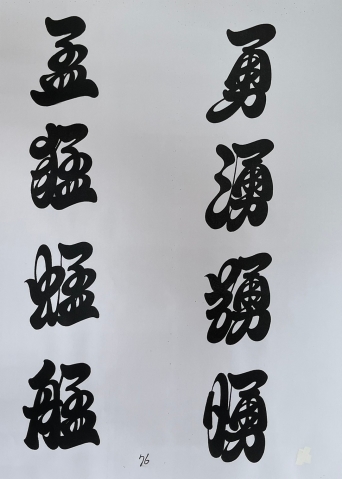 勇湧踴愑
孟猛蜢艋
76